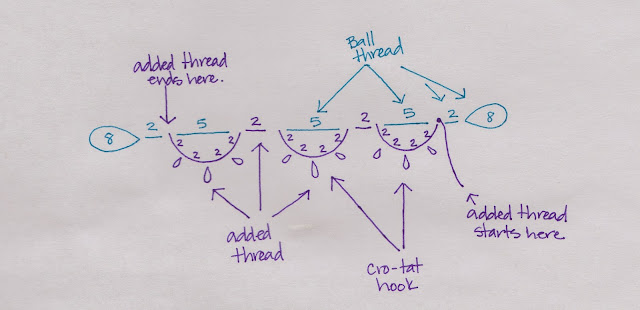 Ball
thread
added thread
ends here.
8 2 5 2 5 2 5 2 8
2 2 2 2 2 2 2 2 2 2 2 2
added
thread
cro-tat
hook
added thread
starts here